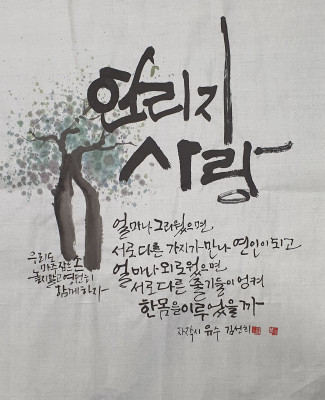 연리지
사랑
얼마나 그리웠으면
서로 다른 가지가 만나 연인이 되고
얼마나 외로웠으면
서로 다른 줄기들이 엉켜
한몸을 이루었을까
자작시 유수 김선희
우리도
마주잡은 손
놓지말고 영원히
함께 하자